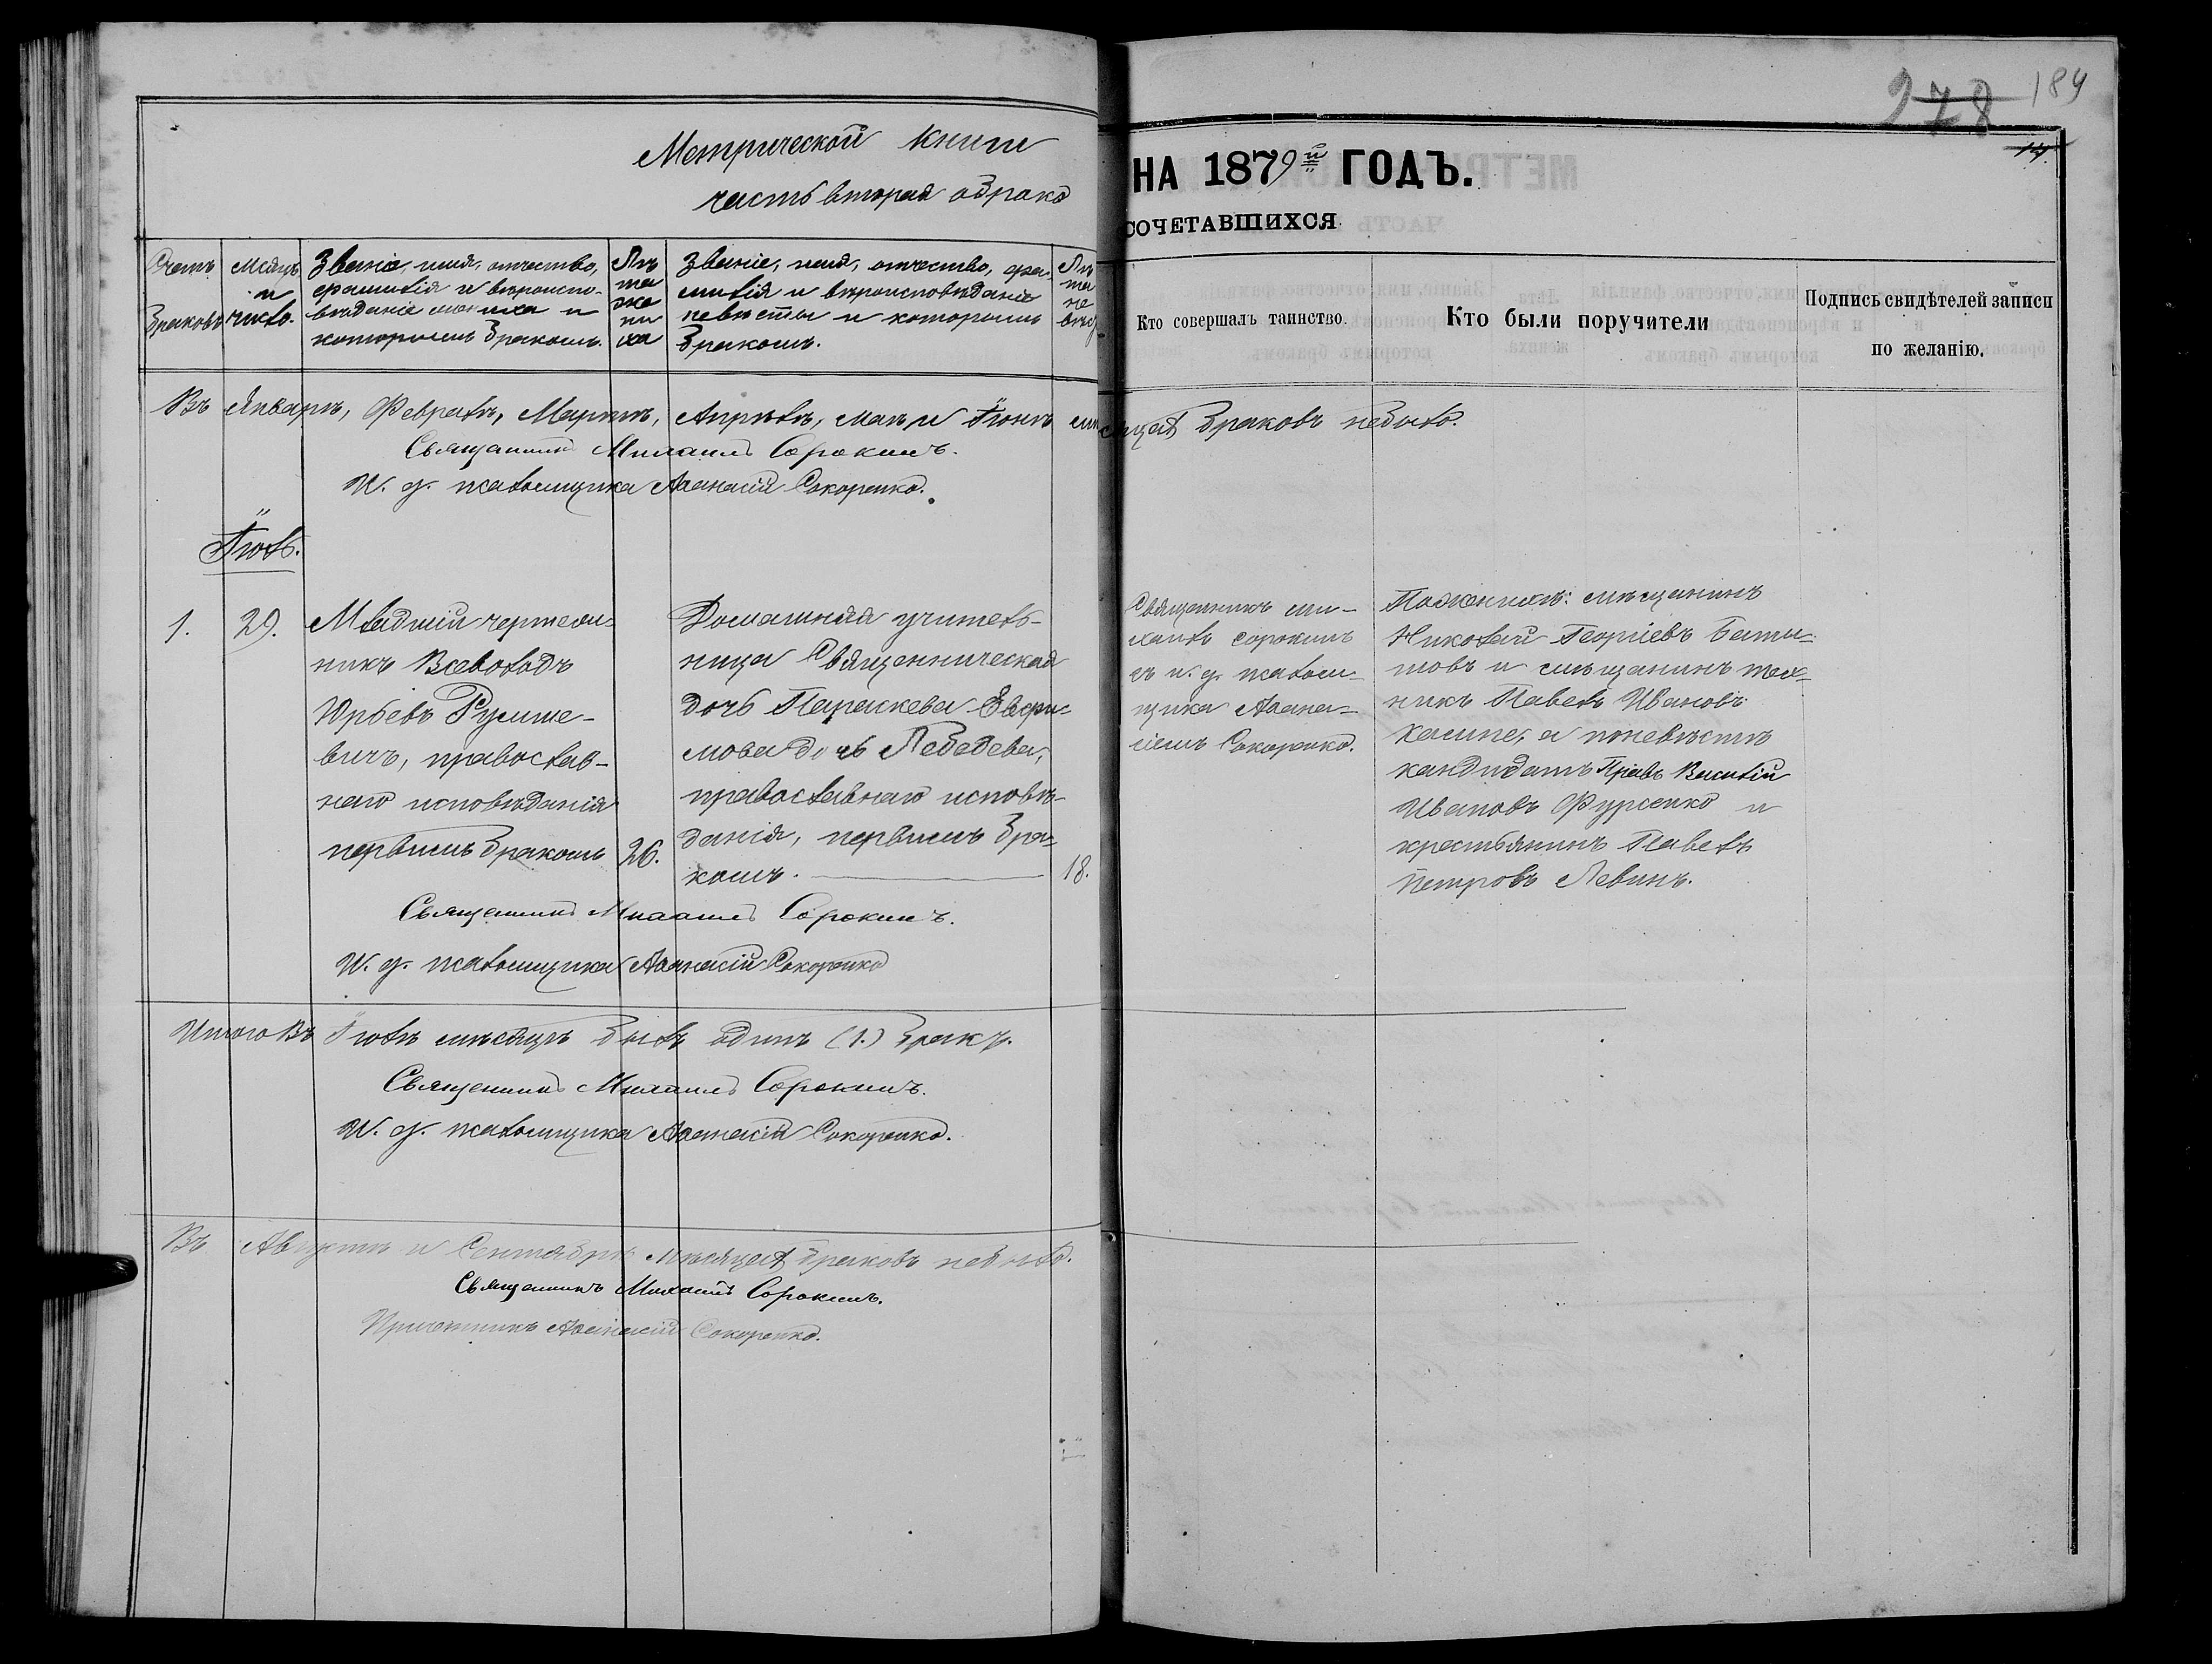 278 184
14.
Метрической книги
НА 1879й ГОДЪ.
часть вторая о брако
СОЧЕТАВШИХСЯ
Счетъ браковъ
Мѣсяцъ и число.
Званіе, имя, отчество,
фамилія и вѣроиспо-
вѣданіе жениха и
которымъ бракомъ.
Лѣ
та
же
ни
ха
Званіе, имя, отчество, фа-
милія и вѣроисповѣданіе
невѣсты и которымъ
бракомъ.
Лѣ
та
не
вѣс
Кто совершалъ таинство.
Кто были поручители
Подпись свидѣтелей записи
по желанію.
Въ Январѣ, Февралѣ, Мартѣ, Апрѣлѣ, маѣ и Іюнѣ мѣсяцахъ браковъ небыло.
Священникъ Михаилъ Сорокинъ.
И. д. псаломщика Аѳанасій Сокоренко.
Іюль.
1.
29.
Младшій чертеж-
никъ Всеволодъ
Юрьевъ Румше-
вичъ, православ-
наго исповѣданія
первымъ бракомъ
26.
Домашняя учитель-
ница Священническая
дочь Параскева Евфи-
мова дочь Лебедева,
православнаго исповѣ-
данія, первымъ бра-
комъ.
18.
Священникъ Ми-
хаилъ Сорокинъ
съ и. д. псалом-
щика Аѳана-
сіемъ Сокоренко.
По женихѣ: мѣщанинъ
Николай Георгіевъ
и мѣщанинъ тех-
никъ Павелъ Ивановъ
а по невѣстѣ
кандидатъ Правъ Василій
Ивановъ Фурсенко и
крестьянинъ Павелъ
Петровъ Левинъ.
Священникъ Михаилъ Сорокинъ.
И. д. псаломщика Аѳанасій Сокоренко
Итого въ Іюлѣ мѣсяцѣ былъ одинъ (1.) бракъ.
Священникъ Михаилъ Сорокинъ.
И. д. псаломщика Аѳанасій Сокоренко.
Въ Августѣ и Сентябрѣ мѣсяцахъ браковъ небыло.
Священникъ Михаилъ Сорокинъ.
Причетникъ Аѳанасій Сокоренко.